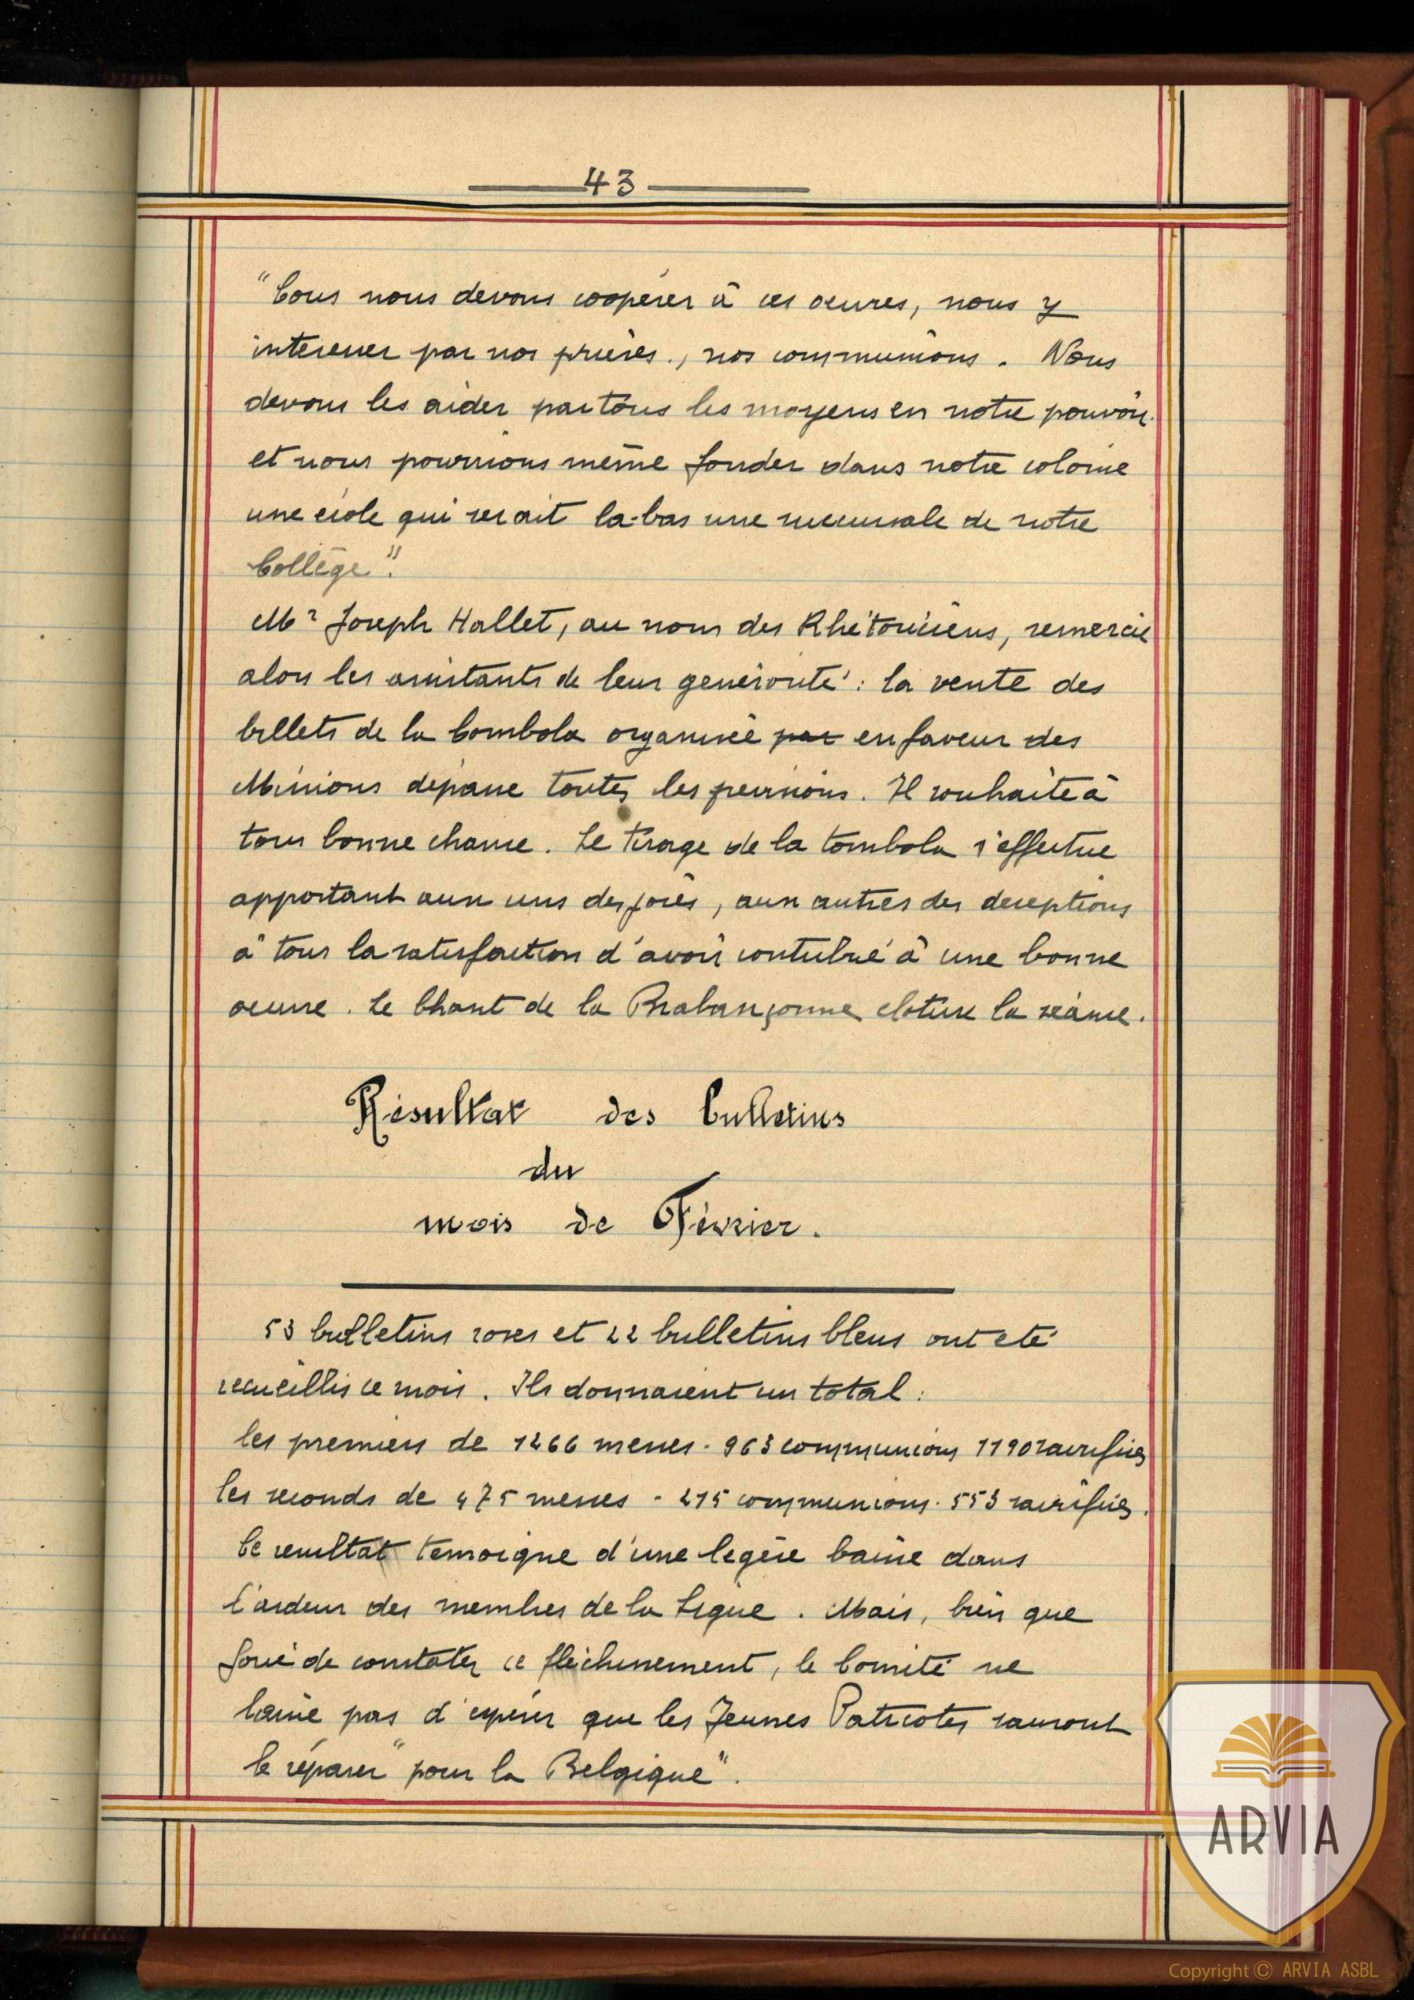 43
"Tous nous devons coopérer à ces oeuvres, nous y
intéresser par nos prières, nos communions. Nous
devons les aider par tous les moyens en notre pouvoir
et nous pourrions même fonder dans notre colonie
une école qui serait là-bas une succursale de notre
Collège".
Mr Joseph Hallet, au nom des Rhétoriciens, remercie
alors les assistants de leur générosité : la vente des
billets de la Tombola organisée par en faveur des
Missions dépasse toutes les prévisions. Il souhaite à
tous bonne chance. Le tirage de la tombola s'effectue
apportant aux uns des joies, aux autres des déceptions
à tous la satisfaction d'avoir contribué à une bonne
oeuvre. Le Chant de la Brabançonne cloture la séance.
Résultat des Bulletins
du
mois de Février.
53 bulletins roses et 22 bulletins bleus ont été
recueillis ce mois. Ils donnaient un total :
les premiers de 1266 messes - 963 communions 1190 sacrifices
les seconds de 475 messes - 215 communions - 553 sacrifices.
Ce resultat temoigne d'une legère baisse dans
l'ardeur des membres de la Ligue. Mais, bien que
forcé de constater ce fléchissement, le Comité ne
laisse pas d'espérer que les Jeunes Patriotes sauront
le réparer "pour la Belgique".
ARVIA
Copyright © ARVIA ASBL